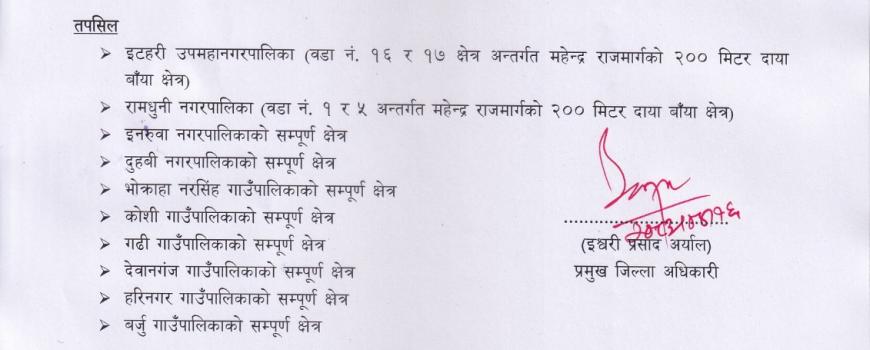 तपसिल
➢ इटहरी उपमहानगरपालिका (वडा नं. १६ र १७ क्षेत्र अन्तर्गत महेन्द्र राजमार्गको २०० मिटर दाया
बाँया क्षेत्र)
➢ रामधुनी नगरपालिका (वडा नं. १ र ५ अन्तर्गत महेन्द्र राजमार्गको २०० मिटर दाया बाँया क्षेत्र)
➢ इनरुवा नगरपालिकाको सम्पूर्ण क्षेत्र
➢ दुहबी नगरपालिकाको सम्पूर्ण क्षेत्र
➢ भोक्राहा नरसिंह गाउँपालिकाको सम्पूर्ण क्षेत्र
➢ कोशी गाउँपालिकाको सम्पूर्ण क्षेत्र
➢ गढी गाउँपालिकाको सम्पूर्ण क्षेत्र
➢ देवानगंज गाउँपालिकाको सम्पूर्ण क्षेत्र
➢ हरिनगर गाउँपालिकाको सम्पूर्ण क्षेत्र
➢ बर्जु गाउँपालिकाको सम्पूर्ण क्षेत्र
..............................
(इश्वरी प्रसाद अर्याल)
प्रमुख जिल्ला अधिकारी